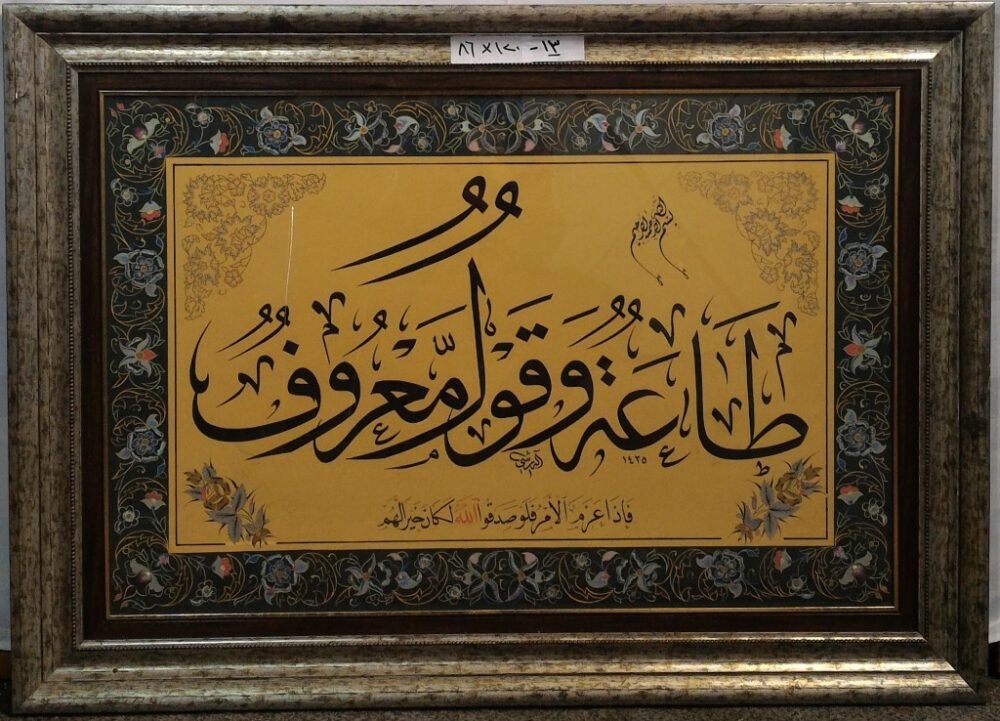 ١٣ - ١٢٠ × ٨٦
بسم الله الرحمن الرحيم
طَاعَةٌ وَقَوْلٌ مَّعْرُوفٌ
١٤٣٥
فَاِذَا عَزَمَ الْاَمْرُ فَلَوْ صَدَقُوا اللّٰهَ لَكَانَ خَيْرًا لَهُم